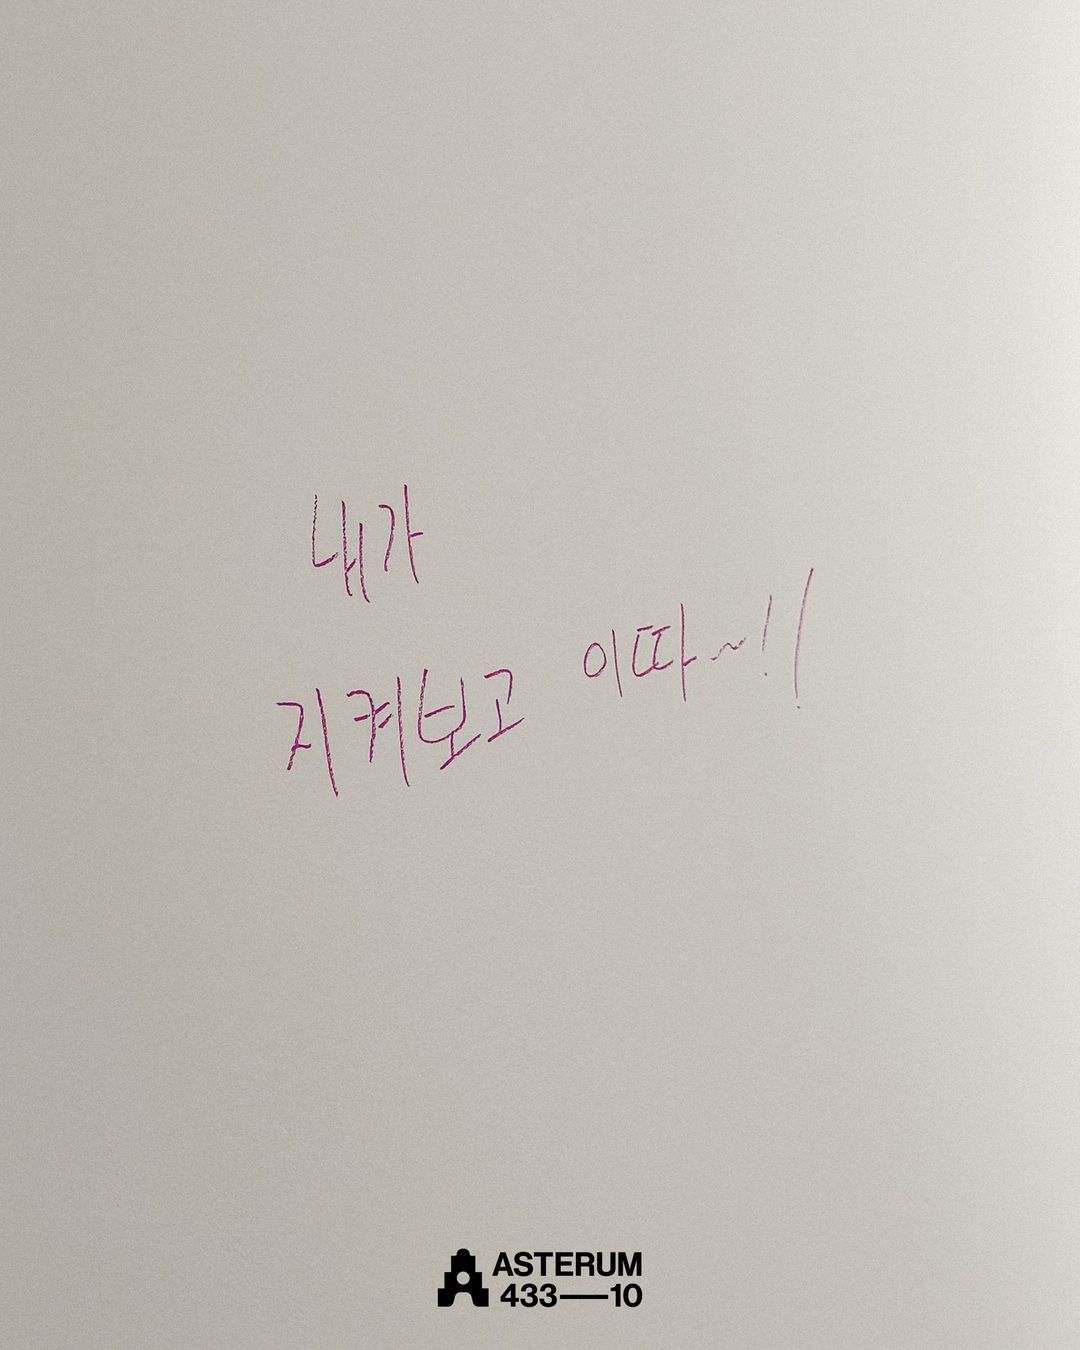 내가
지켜보고 이따~!!
ASTERUM
433—10